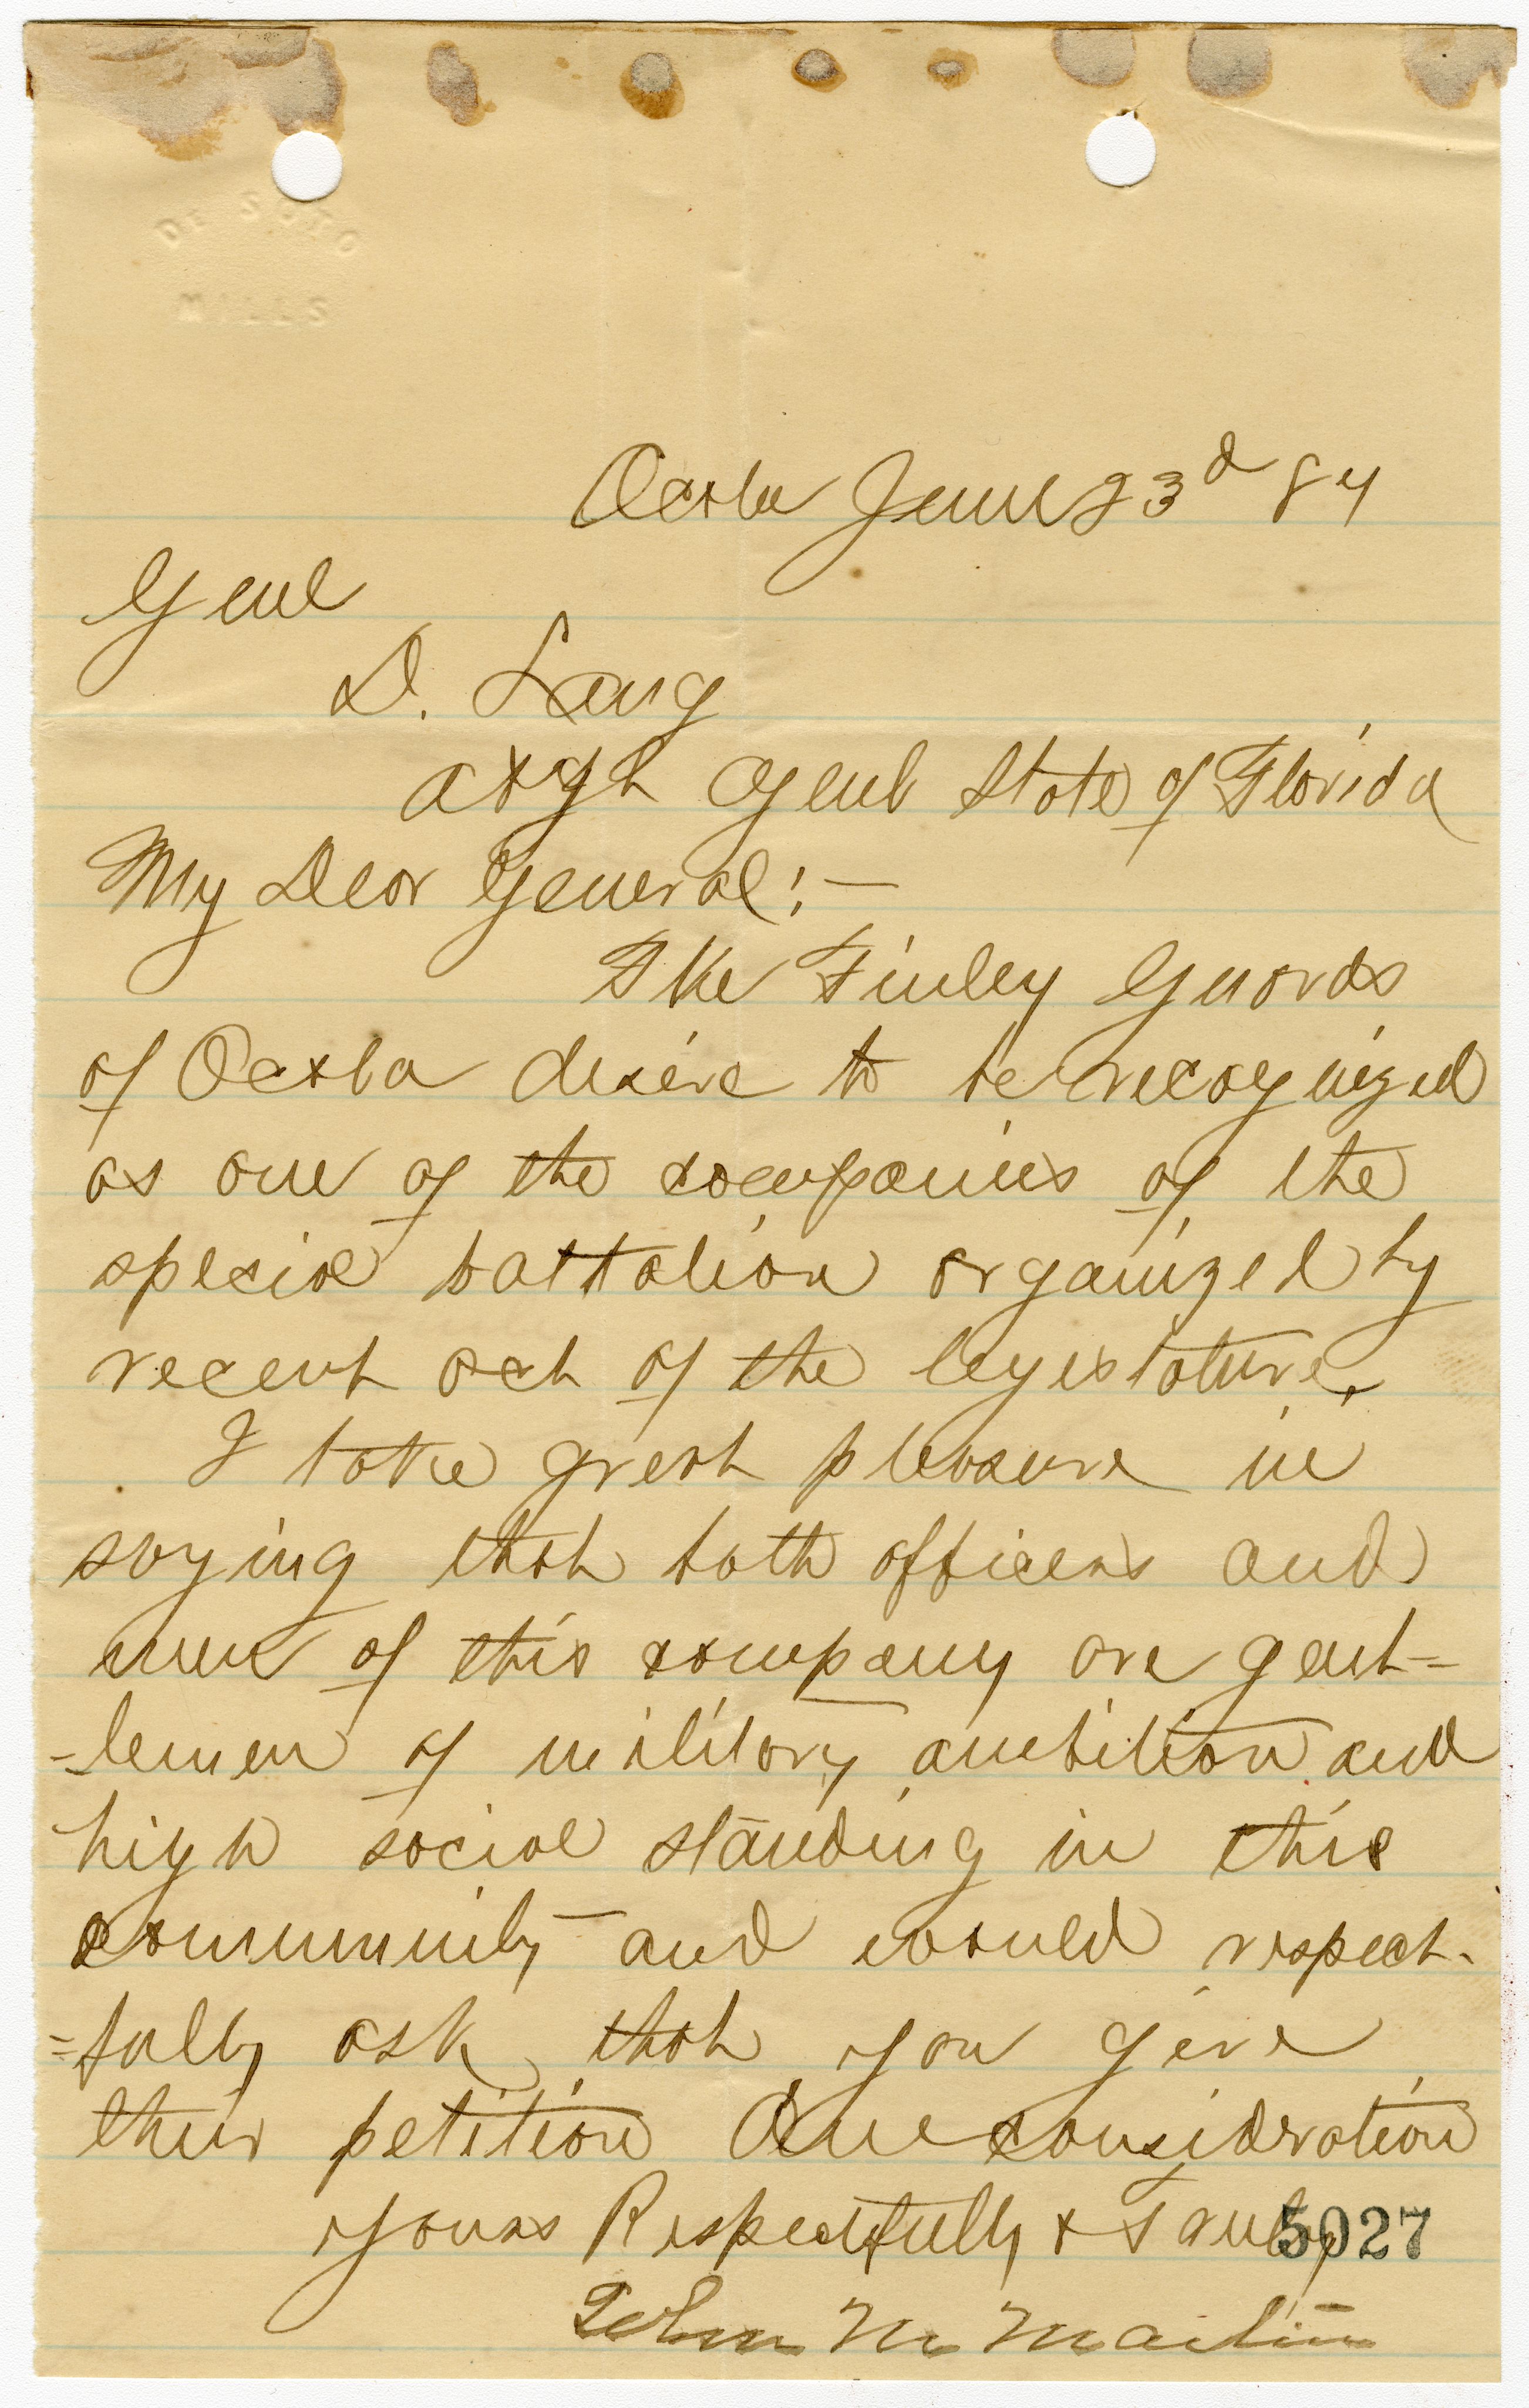 DE SOTO
MILLS
Ocala June 23d 84
Genl
D. Lang
Adgt Genl State of Florida
My Dear General:—
The Finley Guards
of Ocala desire to be recognized
as one of the companies of the
special battalion organized by
recent act of the legislature.
I take great pleasure in
saying that both officers and
men of this company are gent=
-lemen of military ambition and
high social standing in this
community and would respect-
=fully ask that you give
their petition due consideration
Yours Respectfully & Truly
5027
John M Martin